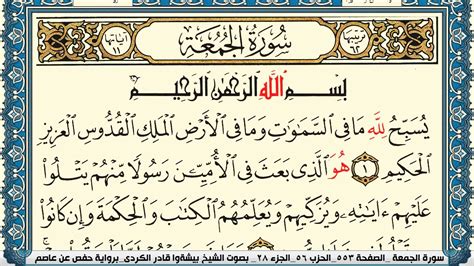 آياتها ١١ سُورَةُ الجُمُعَةِ ترتيبها ٦٢
بِسْمِ ٱللَّهِ ٱلرَّحْمَٰنِ ٱلرَّحِيمِ
يُسَبِّحُ لِلَّهِ مَا فِي ٱلسَّمَٰوَٰتِ وَمَا فِي ٱلْأَرْضِ ٱلْمَلِكِ ٱلْقُدُّوسِ ٱلْعَزِيزِ
ٱلْحَكِيمِ ١ هُوَ ٱلَّذِي بَعَثَ فِي ٱلْأُمِّيِّـۧنَ رَسُولًا مِّنْهُمْ يَتْلُوا۟
عَلَيْهِمْ ءَايَٰتِهِۦ وَيُزَكِّيهِمْ وَيُعَلِّمُهُمُ ٱلْكِتَٰبَ وَٱلْحِكْمَةَ وَإِن كَانُوا۟
سورة الجمعة _الصفحة ٥٥٣_الحزب ٥٦_الجزء ٢٨_ بصوت الشيخ بيشةوا قادر الكردى_برواية حفص عن عاصم